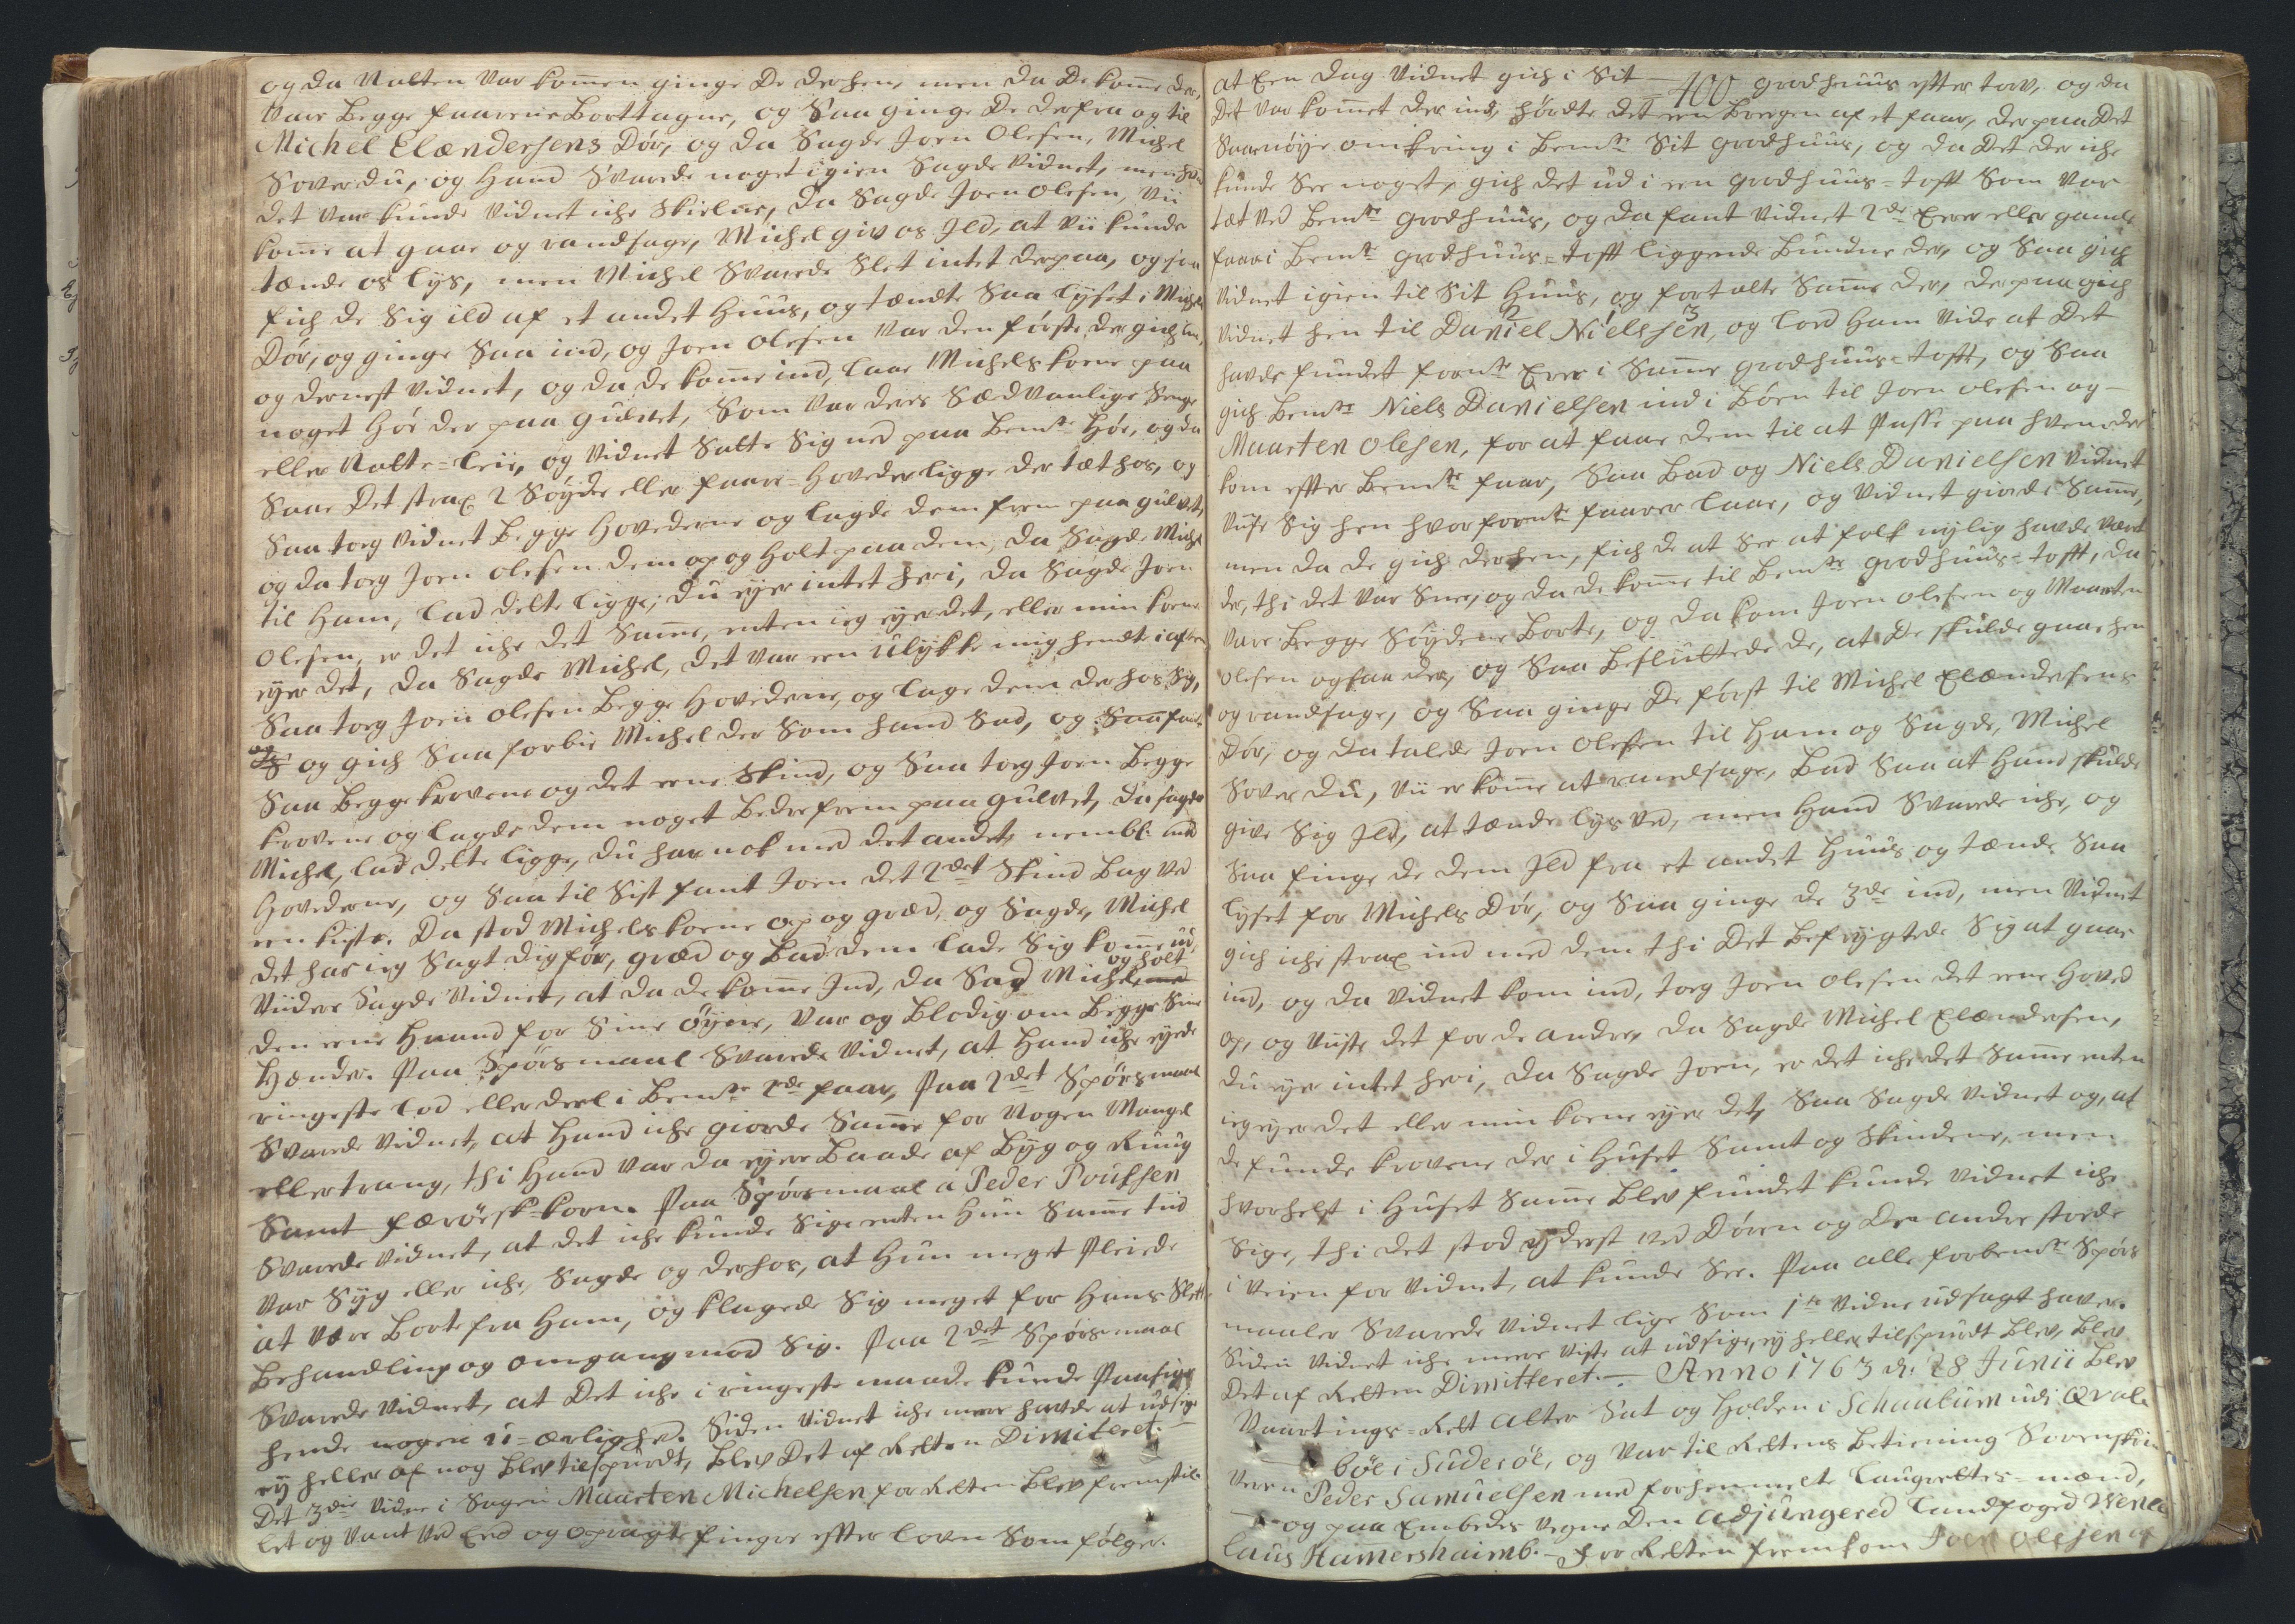 og da Natten var kom̅en ginge De derhen, men da De kom̅e der,
Vare begge faarene borttagne, og Saa ginge De derfra og til
Michel Elændersens Dør, og da Sagde Joen Olesen, Michel
Sover du, og Hand Svarede noget igien Sagde Vidnet, men hvad
det var kunde Vidnet iche Skielne, da Sagde Joen Olesen, Vii
kom̅e at gaae og randsage, Michel giv os Jld, at Vii kunde
tænde os lys, men Michel Svarede Slet intet derpaa, og saa
fich de Sig ild af et andet Huus, og tændte Saa lyset i Michels
Dør, og ginge Saa ind, og Joen Olesen var den første der gich ind,
og dernest Vidnet, og da de kom̅e ind, laae Michels kone paa
noget Høe der paa gulvet, Som var deres Sædvanlige Senge
eller Natte-leie, og Vidnet Satte Sig ned paa bemte Høe, og da
Saae Det strax 2 Søyde eller faare-Hoveder ligge der tæt hos, og
Saa toeg Vidnet begge Hovederne og lagde dem frem paa gulvet,
og da toeg Joen Olesen dem op og Holt paa dem, da Sagde Michel
til Ham, lad dette ligge, du eyer intet heri, da Sagde Joen
Olesen, er det iche det Sam̅e, enten ieg eyer det, eller min kone
eyer det, da Sagde Michel, det var een Ulykke mig hendt i aften
Saa toeg Joen Olesen begge Hovederne, og lagde dem der hos Sig,
og gich Saa forbie Michel der Som hand Sad, og fant
Saa begge krovene og det eene Skind, og Saa toeg Joen begge
krovene og lagde dem noget bedre frem paa gulvet, da sagde
Michel, lad dette ligge, du har nok med det andet, nembl: med
Hovederne, og Saa til Sist fant Joen det 2det Skind bag ved
een kiste. Da stod Michels kone op og græd, og Sagde, Michel
det har ieg Sagt dig før, græd og bad dem lade Sig kom̅e ud,
Viidere Sagde Vidnet, at da de kom̅e Jnd, da Sad Michel og holt
den eene Haand for Sine øyne, Var og blodig om begge Sine
Hænder. Paa Spørsmaal Svarede Vidnet, at Hand iche eyede
ringeste lod eller deel i bemte 2de faar, Paa 2det Spørsmaal
Svarede Vidnet, at Hand iche giorde Sam̅e for Nogen Mangel
eller trang, thi Hand var da eyer baade af byg og Ruug
Samt færøesk-korn. Paa Spørsmaal a Peder Poulsen
Svarede Vidnet, at det iche kunde Sige enten Hun Sam̅e tiid
var Syg eller iche, Sagde og derhos, at Hun meget Pleiede
at være borte fra Ham, og klagede Sig meget for Hans Slette
behandling og omgang mod Sig. Paa 2det Spørsmaal
Svarede Vidnet, at Det iche i ringeste maade kunde Paasige
hende nogen u-ærlighed. Siden Vidnet iche meere havde at udsige
ey heller af nog blev tilspurdt, blev Det af Retten Dimiteret.
Det 3die Vidne i Sagen Maarten Michelsen for Retten blev fremstil-
let og Vant ved Eed og opragte fingre efter loven Som følger.
at Een Dag Vidnet gich i Sit grodhuus efter torv, og da
400
Det var kom̅et der ind, hørdte det een bregen af et faar, derpaa Det
Saae nøye omkring i bemte Sit grodhuus, og da Det der iche
kunde See noget, gich det ud i een grodhuus-toft Som var
tæt ved bemte grodhuus, og da fant Vidnet 2de Eer eller gamle
faar i bemte grodhuus-toft liggende bundne der, og Saa gich
Vidnet igien til Sit Huus, og fortalte Sam̅e der, derpaa gich
2 1 3
Vidnet hen til Daniel Nielssen, og lod Ham vide at Det
havde fundet foormte Eer i Sam̅e grodhuus-toft, og Saa
gich bemte Niels Danielsen ind i Bøen til Joen Olesen og
Maarten Olesen, for at faae dem til at Passe paa hvem der
kom efter bemte faar, Saa bad og Niels Danielsen Vidnet
Viise Sig hen hvor foormte faarer laae, og Vidnet giorde Sam̅e,
men da de gich derhen, fich de at See at folk nylig havde været
der, thi det var Snee, og da de kom̅e til bemte grodhuus-toft, da
vare begge Søydene borte, og da kom Joen Olesen og Maarten
Olesen ogsaa der, og Saa besluttede de, at De skulde gaae hen
og randsage, og Saa ginge De først til Michel Elændersens
Dør, og da talede Joen Olesen til Ham og Sagde, Michel
Sover du, vii er kom̅e at randsage, bad Saa at Hand skulde
give Sig Jld, at tænde lys ved, men Hand Svarede iche, og
Saa finge de dem Jld fra et andet Huus og tænde Saa
lyset for Michels Dør, og Saa ginge de 3de ind, men Vidnet
gich iche strax ind med dem thi Det befrygtede Sig at gaae
ind, og da Vidnet kom ind, toeg Joen Olesen det eene Hoved
op, og Viiste det for de andre, da Sagde Michel Elændersen,
du eyer intet heri, da Sagde Joen, er det iche det Sam̅e enten
ieg eyer det eller min kone eyer det, Saa Sagde Vidnet og, at
de funde krovene der i Huset Samt og Skindene, men
hvorhelst i Huset Sam̅e blev fundet kunde Vidnet iche
Sige, thi det stod yderst ved Døren og De andre stode
i Veien for Vidnet, at kunde See. Paa alle forbemte Spørs
maaler Svarede Vidnet lige Som 1te Vidne udsagt haver.
Siden Vidnet iche meere Viste at udsige, ey heller tilspurdt blev, blev
Det af Retten Dimitteret.— Anno 1763 d. 28 Junii blev
Vaartings-Rett atter Sat og Holden i Schaalum udi Qval-
bøe i Suderøe, og Var til Rettens betiening Sorenskri-
veren Peder Samuelsen med forhenmelte laugrettes-mænd,
og paa Embeds Vegne Den adjungered landfoged Wence-
laus Ham̅ershaimb.— For Retten fremkom Joen Olesen af